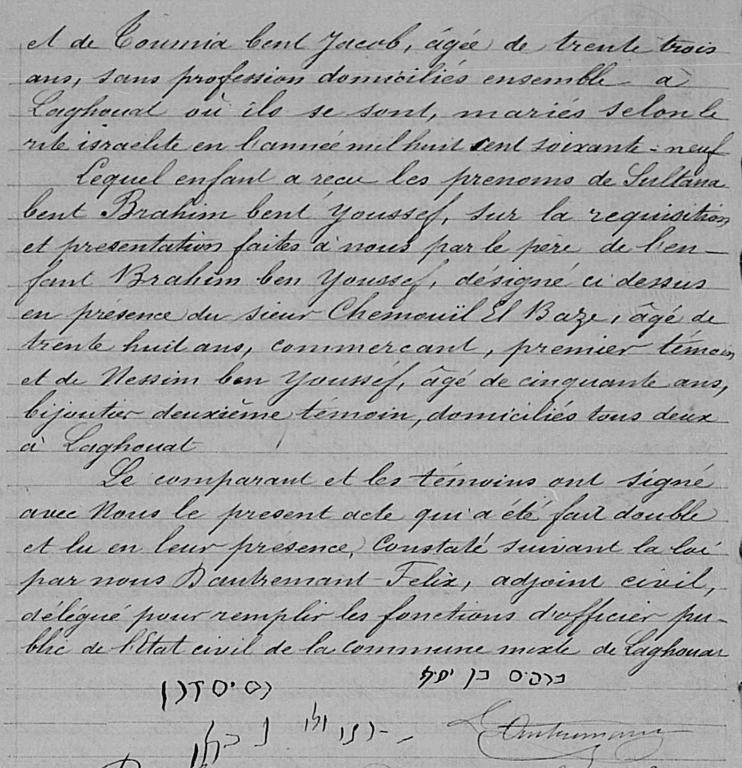 et de Toumia bent Jacob, âgée de trente trois
ans, sans profession domiciliés ensemble a
Laghouat où ils se sont, mariés selon le
rite israelite en l'année mil huit cent soixante-neuf
Lequel enfant a recu les prenoms de Sultana
bent Brahim bent Youssef, sur la requisition
et presentation faites à nous par le père de l'en-
fant Brahim ben Youssef, désigné ci dessus
en présence du sieur Chemouïl El Baze, âgé de
trente huit ans, commercant, premier témoin
et de Nessim ben Youssèf, âgé de cinquante ans,
bijoutier deuxième témoin, domiciliés tous deux
à Laghouat
Le comparant et les témoins ont signé
avec Nous le present acte qui a été fait double
et lu en leur présence, Constaté suivant la loi
par nous Dautremant Felix, adjoint civil,
délégué pour remplir les fonctions d'officier pu-
blic de l'Etat civil de la commune mixte de Laghouat